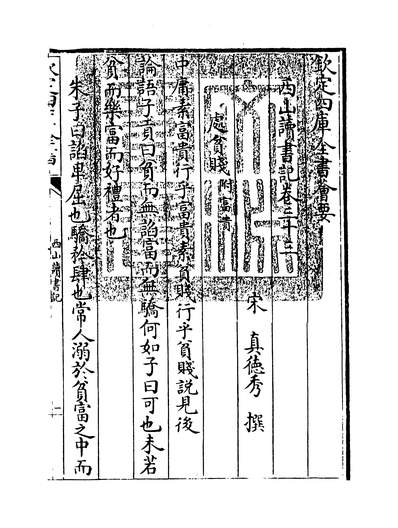 欽定四庫全書薈要
西山讀書記卷三十三
宋 真德秀 撰
處貧賤 附富貴
中庸素富貴行乎富貴素貧賤行乎貧賤說見後
論語子貢曰貧而無諂富而無驕何如子曰可也未若
貧而樂富而好禮者也
朱子曰諂卑屈也驕矜肆也常人溺於貧富之中而
西山讀書記